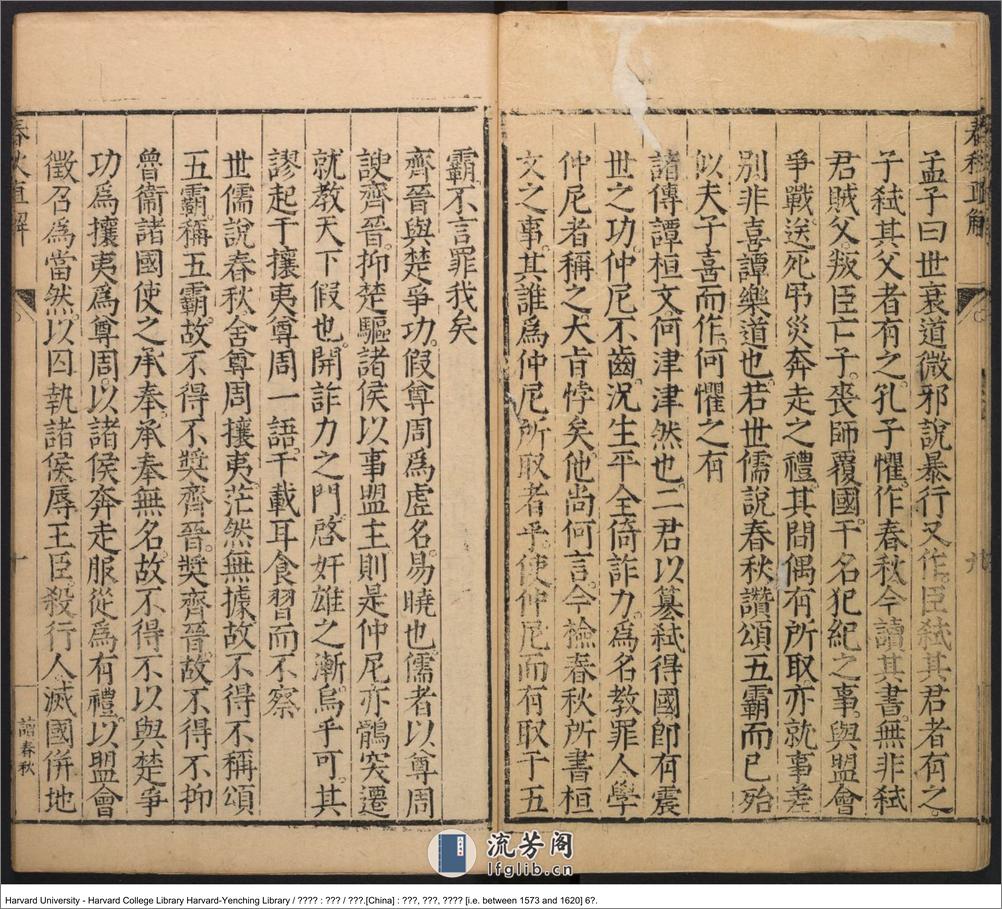 春秋直解
九
孟子曰世衰道微邪說暴行又作臣弒其君者有之
子弒其父者有之孔子懼作春秋今讀其書無非弒
君賊父叛臣亡子喪師覆國干名犯紀之事與盟會
爭戰送死弔災奔走之禮其間偶有所取亦就事差
別非喜譚樂道也若世儒說春秋讚頌五霸而已殆
似夫子喜而作何懼之有
諸傳譚桓文何津津然也二君以簒弒得國卽有震
世之功仲尼不齒況生平全倚詐力為名教罪人學
仲尼者稱之大㫖悖矣他尚何言今檢春秋所書桓
文之事其誰為仲尼所取者乎使仲尼而有取于五
霸不言罪我矣
齊晉與楚爭功假尊周為虛名易曉也儒者以尊周
諛齊晉抑楚驅諸侯以事盟主則是仲尼亦鶻突遷
就教天下假也開詐力之門啓奸雄之漸烏乎可其
謬起于攘夷尊周一語千載耳食習而不察
世儒說春秋舍尊周攘夷茫然無據故不得不稱頌
五霸稱五霸故不得不獎齊晉獎齊晉故不得不抑
曾衞諸國使之承奉承奉無名故不得不以與楚爭
功為攘夷為尊周以諸侯奔走服從為有禮以盟會
徵召為當然以囚執諸侯辱王臣殺行人滅國併地
春秋直解
十
讀春秋
流芳阁
lfglib.cn
Harvard University - Harvard College Library Harvard-Yenching Library / ???? : ??? / ???.[China] : ???, ???, ???? [i.e. between 1573 and 1620] 6?.